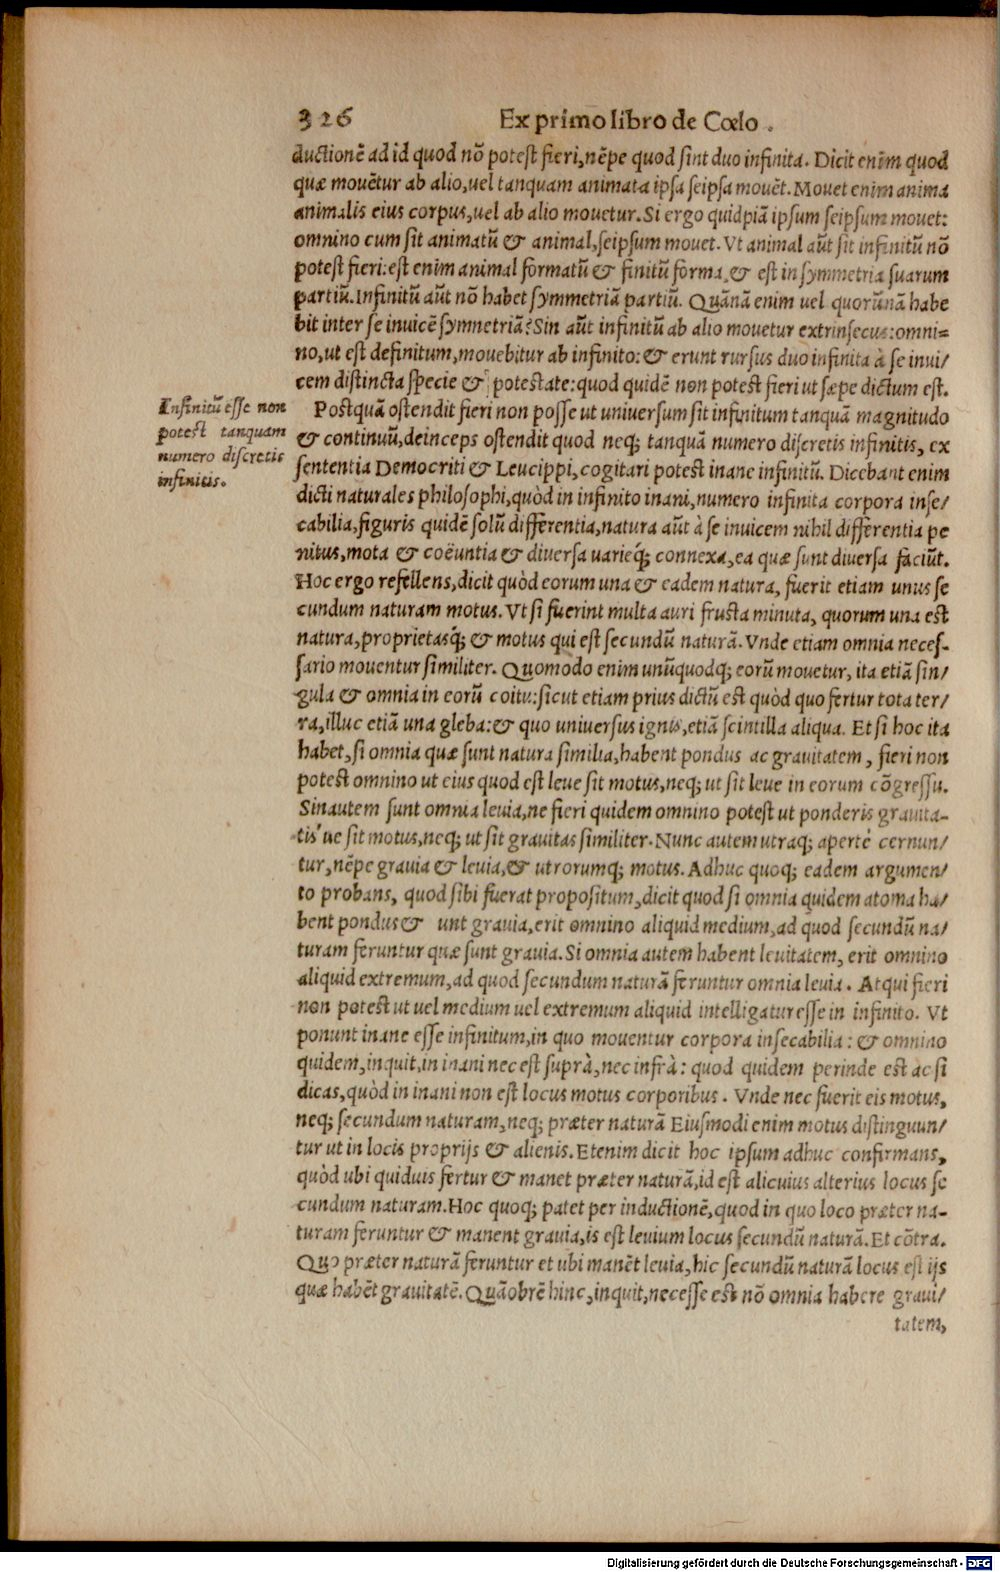 326 Ex primo libro de Cœlo.
ductionẽ ad id quod nõ potest fieri, nẽpe quod sint duo infinita. Dicit enim quod
quæ movẽtur ab alio, vel tanquam animata ipsa seipsa movẽt. Movet enim anima
animalis eius corpus, vel ab alio movetur. Si ergo quidpiã ipsum seipsum movet:
omnino cum sit animatũ & animal, seipsum movet. Vt animal aũt sit infinitũ nõ
potest fieri: est enim animal formatũ & finitũ forma, & est in symmetria suarum
partiũ. Infinitũ aũt nõ habet symmetriã partiũ. Quãnã enim vel quorũnã habe
bit inter se invicẽ symnetriã? Sin aũt infinitũ ab alio movetur extrinsecus: omni=
no, ut est definitum, movebitur ab infinito: & erunt rursus duo infinita à se invi/
cem distincta specie & potestate: quod quidẽ non potest fieri ut sæpe dictum est.
Infinitũ esse non
potest tanquam
numero discretis
infinitis.
Postquã ostendit fieri non posse ut universum sit infinitum tanquã magnitudo
& continuũ, deinceps ostendit quod neq; tanquã numero discretis infinitis, ex
sententia Democriti & Leucippi, cogitari potest inane infinitũ. Dicebant enim
dicti naturales philosophi, quòd in infinito inani, numero infinita corpora inse/
cabilia, figuris quidẽ solũ differentia, natura aũt à se invicem nihil differentia pe
nitus, mota & coëuntia & diversa varieq́; connexa, ea quæ sunt diversa faciũt.
Hoc ergo refellens, dicit quòd eorum una & eadem natura, fuerit etiam unus se
cundum naturam motus. Vt si fuerint multa auri frusta minuta, quorum una est
natura, proprietasq́; & motus qui est secundũ naturã. Vnde etiam omnia neces-
sario moventur similiter. Quomodo enim unũquodq; eorũ movetur, ita etiã sin/
gula & omnia in eorũ coitu: sicut etiam prius dictũ est quòd quo fertur tota ter/
ra, illuc etiã una gleba: & quo universus ignis, etiã scintilla aliqua. Et si hoc ita
habet, si omnia quæ sunt natura similia, habent pondus ac gravitatem, fieri non
potest omnino ut eius quod est leve sit motus, neq; ut sit leve in eorum cõgressu.
Sin autem sunt omnia levia, ne fieri quidem omnino potest ut ponderis gravita-
tis ve sit motus, neq; ut sit gravitas similiter. Nunc autem utraq; apertè cernun/
tur, nẽpe gravia & levia, & utrorumq; motus. Adhuc quoq; eadem argumen/
to probans, quod sibi fuerat propositum, dicit quod si omnia quidem atoma ha/
bent pondus & unt gravia, erit omnino aliquid medium, ad quod secundũ na/
turam feruntur quæ sunt gravia. Si omnia autem habent levitatem, erit omnino
aliquid extremum, ad quod secundum naturã feruntur omnia levia. Atqui fieri
non potest ut vel medium vel extremum aliquid intelligatur esse in infinito. Vt
ponunt inane esse infinitum, in quo moventur corpora insecabilia: & omnino
quidem, inquit, in inani nec est suprà, nec infrà: quod quidem perinde est ac si
dicas, quòd in inani non est locus motus corporibus. Vnde nec fuerit eis motus,
neq; secundum naturam, neq; præter naturã Eiusmodi enim motus distinguun/
tur ut in locis proprijs & alienis. Etenim dicit hoc ipsum adhuc confirmans,
quòd ubi quiduis fertur & manet præter naturã, id est alicuius alterius locus se
cundum naturam. Hoc quoq; patet per inductionẽ, quod in quo loco præter na-
turam feruntur & manent gravia, is est levium locus secundũ naturã. Et cõtra.
Quo præter naturã feruntur et ubi manẽt levia, hic secundũ naturã locus est ijs
quæ habẽt gravitatẽ. Quãobrẽ hinc, inquit, necesse est nõ omnia habere gravi/
tatem,
Digitalisierung gefördert durch die Deutsche Forschungsgemeinschaft - DFG